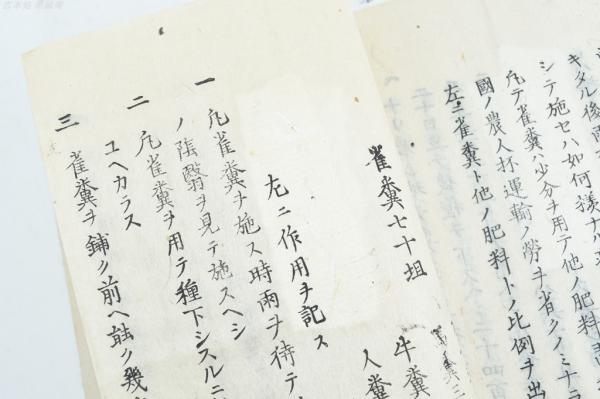 キタル後雨
シテ施セハ如何様ナル
凡テ雀糞ハ少分ヲ用テ他ノ肥料
國ノ農人抔運輸ノ勞ヲ省クノミナラ
左ニ雀糞ト他ノ肥料トノ比例ヲ出
牛糞
雀糞七十坦
人糞
左ニ作用ヲ記ス
一 凡雀糞ヲ施ス時雨ヲ待テ
ノ陰翳ヲ見テ施スヘシ
二 凡雀糞ヲ用テ種下シスルニ
ユヘカラス
三 雀糞ヲ鋪ク前ヘ能ク幾